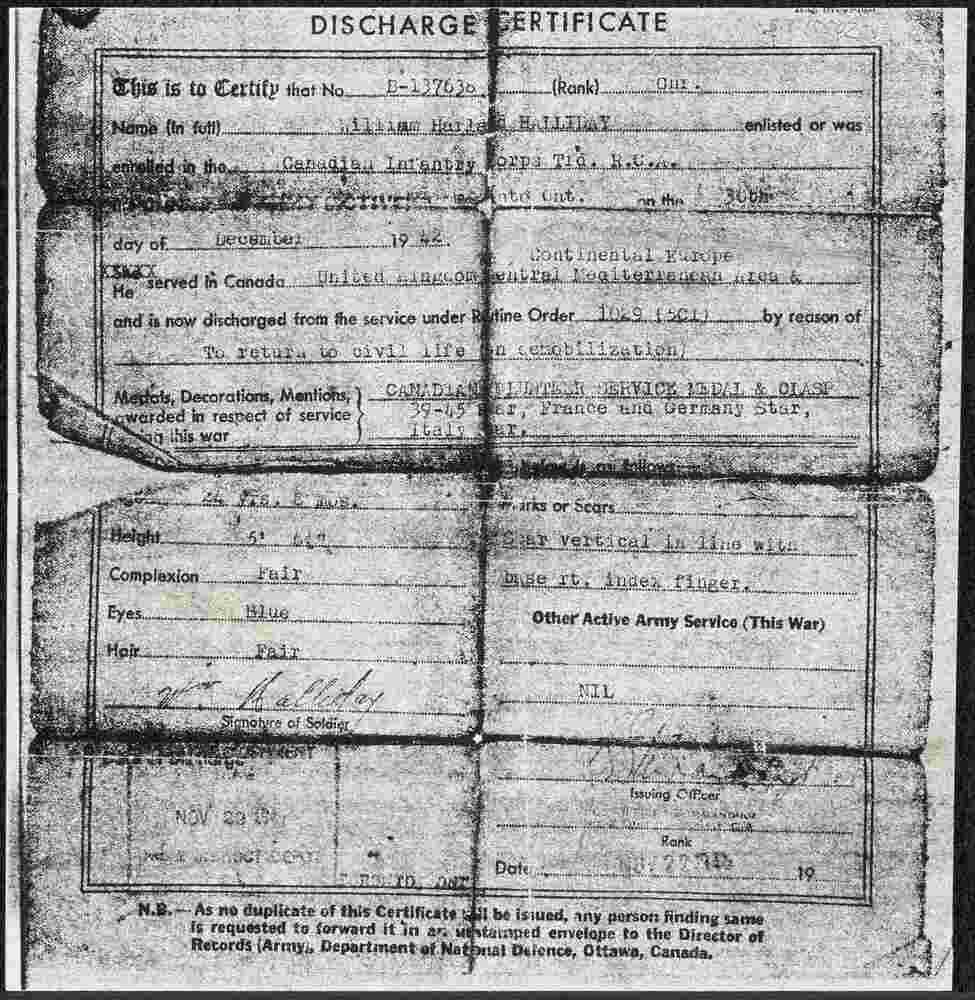 DISCHARGE CERTIFICATE
This is to Certify that No. B-137636 (Rank) Gnr.
Name (in full) William Harland HALLIDAY enlisted or was
enrolled in the Canadian Infantry Corps Trd. R.C.A.
Ont. on the 30th
day of December 19 42.
Continental Europe
He served in Canada United Kingdom Central Mediterranean Area &
and is now discharged from the service under Routine Order 1029 (5C1) by reason of
To return to civil life on demobilization)
Medals, Decorations, Mentions, CANADIAN VOLUNTEER SERVICE MEDAL & CLASP
awarded in respect of service 39-45 Star, France and Germany Star,
this war Italy Star.
as follows
24 yrs. 8 mos. Marks or Scars
Height 5' Scar vertical in line with
Complexion Fair base rt. index finger.
Eyes Blue Other Active Army Service (This War)
Hair Fair
Wm Halliday NIL
Signature of Soldier
Issuing Officer
NOV
Rank
Date 19
N.B.—As no duplicate of this Certificate will be issued, any person finding same
is requested to forward it in an unstamped envelope to the Director of
Records (Army), Department of National Defence, Ottawa, Canada.